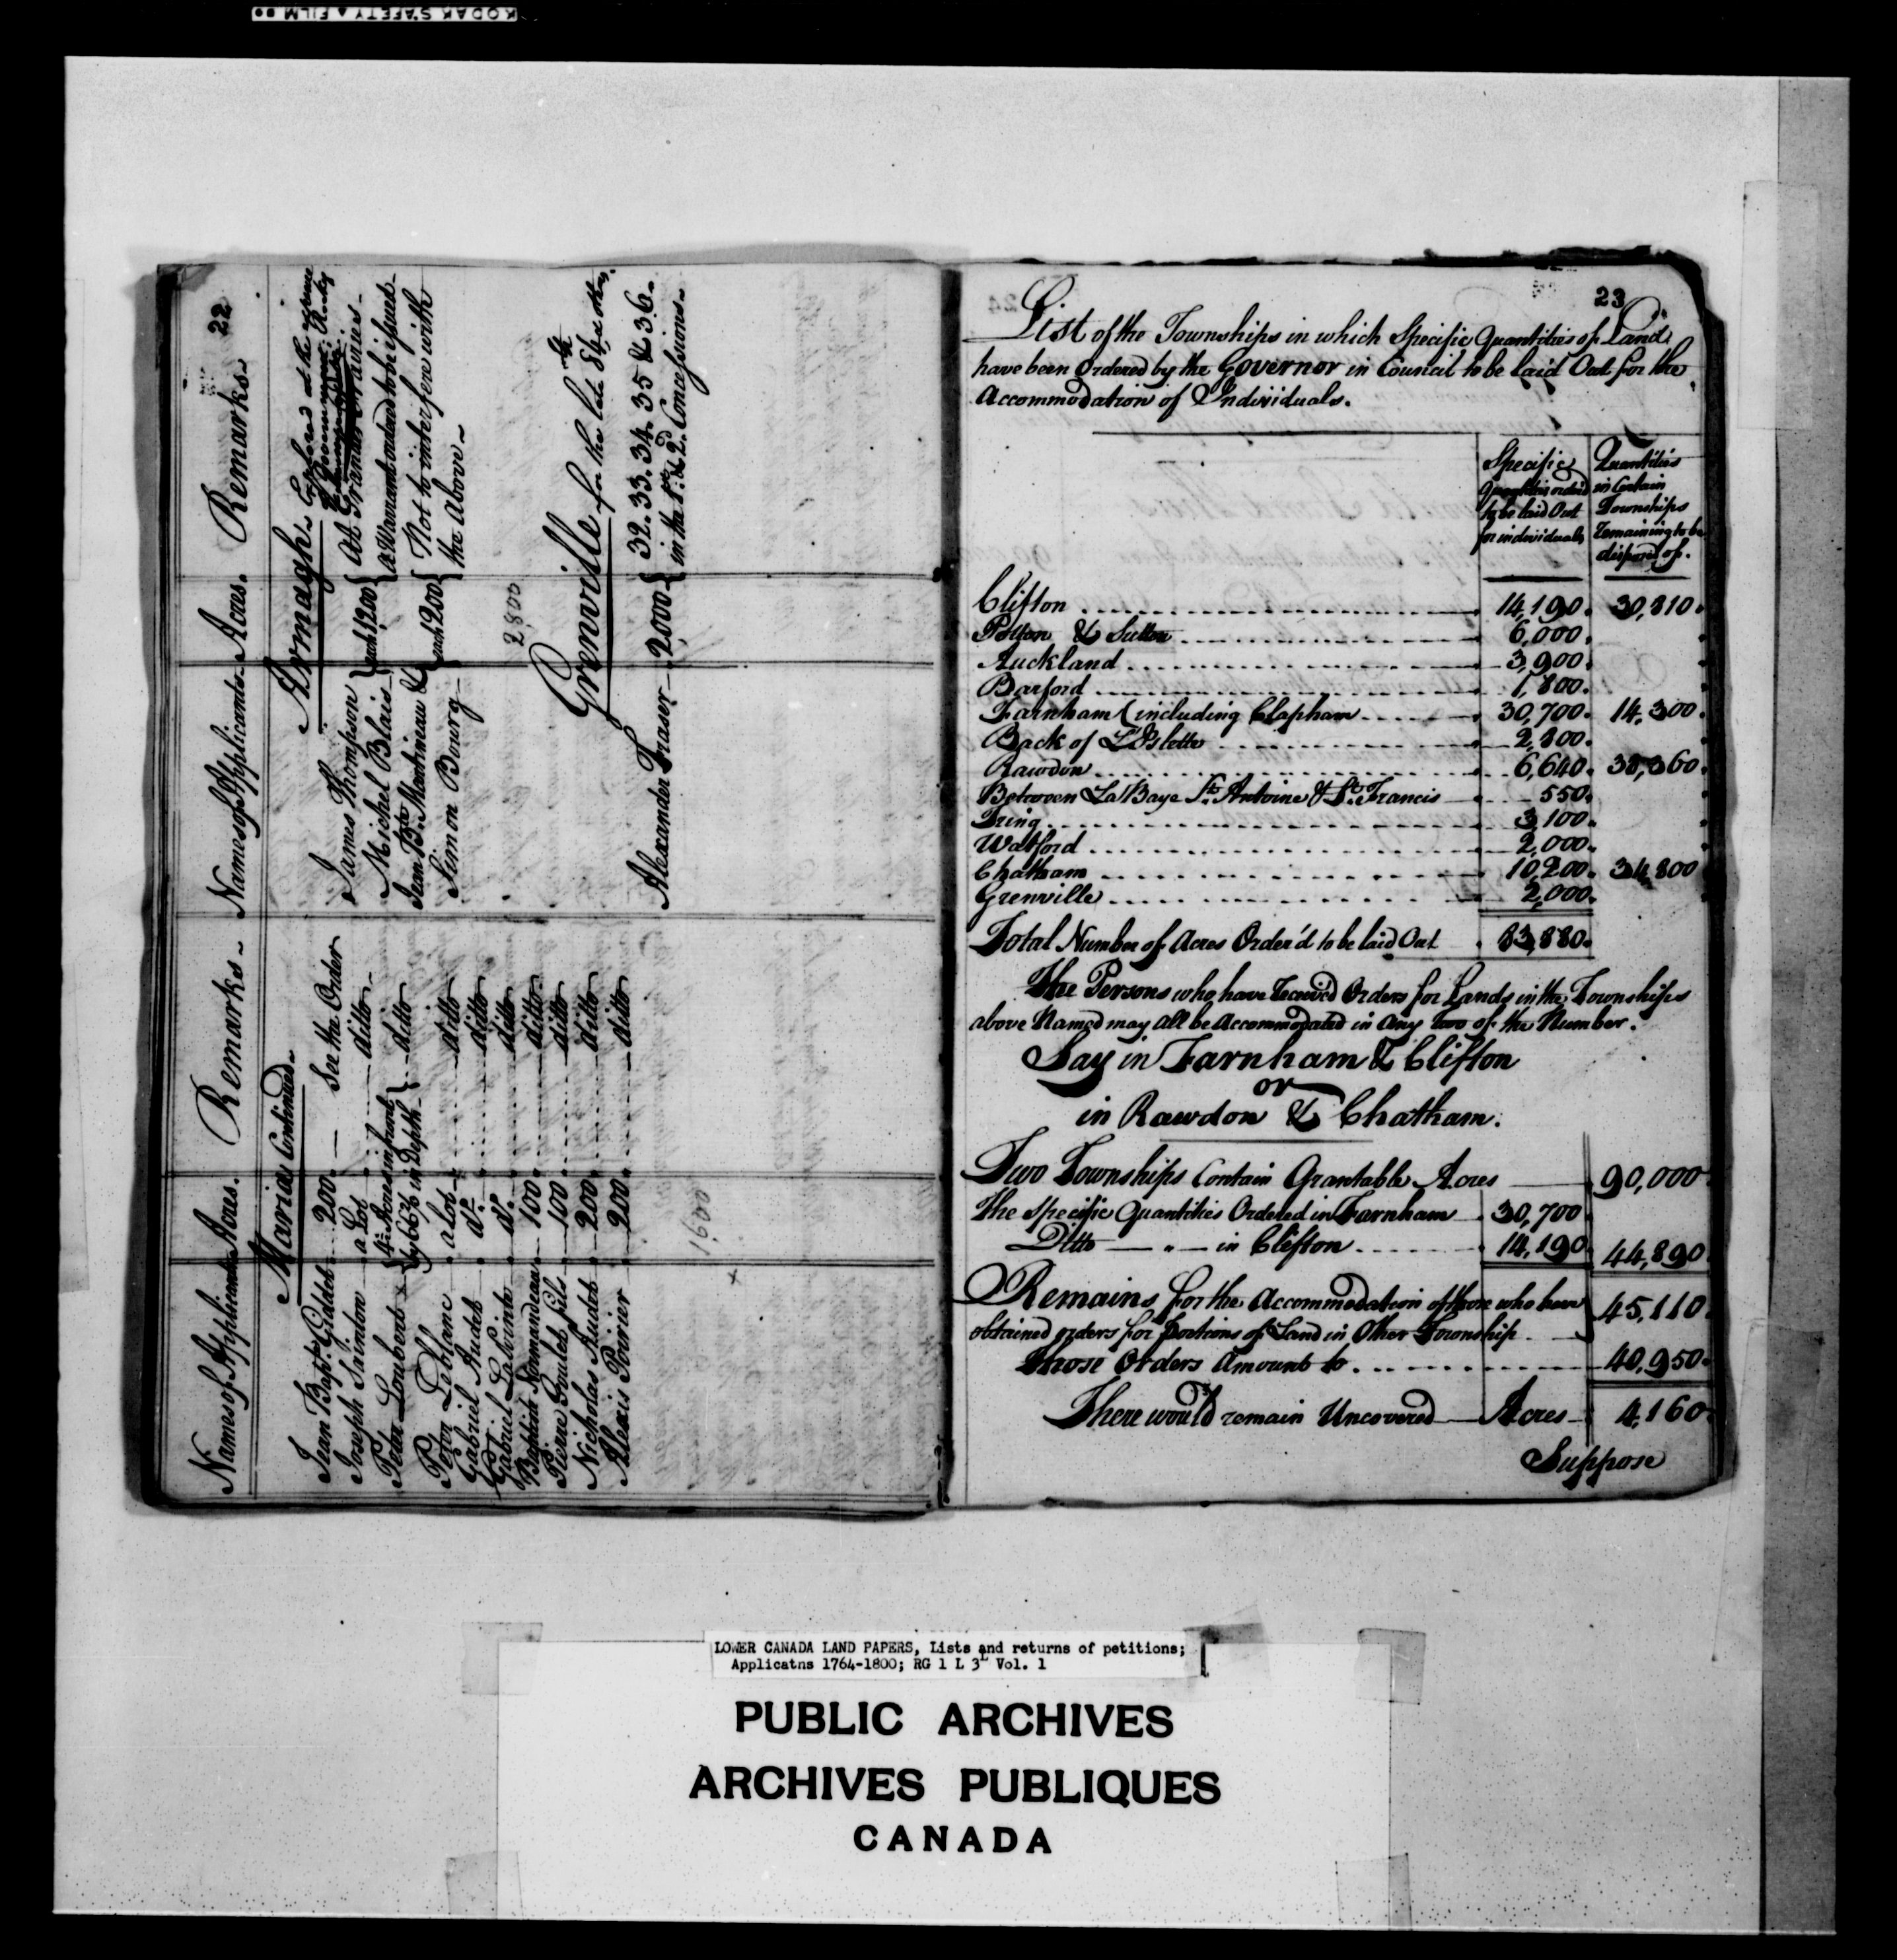 KODAK SAFETY FILM
22
Names of Applicants
Acres.
Remarks
Names of Applicants
Acres.
Remarks
Maria Continued
Jean Bapt. Guidet 200. See the Order
Joseph Sainton a Lot ditto
Peter Loubert 4 Acres in front by 663/6 in Depth ditto
Peter Leblanc a Lot ditto
Gabriel Audet do. ditto
Gabriel Labrinte do. ditto
Baptiste Normandeau 100 ditto
Pierre Goulet fils 100 ditto
Nicholas Audet 200 ditto
Alexis Poirier 200 ditto
1600
Armagh
James Thompson
Michel Blais
each 1,200
At Grande Graves
a Warrant ordered to be issued
Jean Bte. Martineau &
Simon Bourg
each 200
Not to interfere with
the above
2,800
Grenville for the late 84th &ca others.
Alexander Fraser 2,000
32. 33. 34. 35 & 36.
in the 1st & 2d Concessions.
23
List of the Townships in which Specific Quantities of Land
have been Ordered by the Governor in Council to be laid Out for the
Accommodation of Individuals.
Specific
Quantities orderd
to be laid Out
for individuals
Quantities
in Certain
Townships
remaining to be
disposed of.
Clifton 14,190. 30,810.
Potton & Sutton 6,000.
Auckland 3,900.
Barford 1,800.
Farnham (including Clapham 30,700. 14,300.
Back of L'Islette 2,800.
Rawdon 6,640. 38,360.
Between La Baye St. Antoine & St. Francis 550.
Tring 3,100.
Watford 2,000.
Chatham 10,200. 34,800
Grenville 2,000.
Total Number of Acres Order'd to be laid Out 83,880.
The Persons who have received Orders for Lands in the Townships
above Named may all be Accommodated in any two of the Number.
Say in Farnham & Clifton
or
in Rawdon & Chatham.
Two Townships Contain Grantable Acres 90,000
The specific Quantities Ordered in Farnham 30,700
Ditto — " — in Clifton 14,190 44,890
Remains for the Accommodation of those who have 45,110.
obtained orders for portions of Land in Other Township
Those Orders Amount to 40,950.
There would remain Uncovered Acres 4,160.
Suppose
LOWER CANADA LAND PAPERS, Lists and returns of petitions;
Applicatns 1764-1800; RG 1 L 3L Vol. 1
PUBLIC ARCHIVES
ARCHIVES PUBLIQUES
CANADA